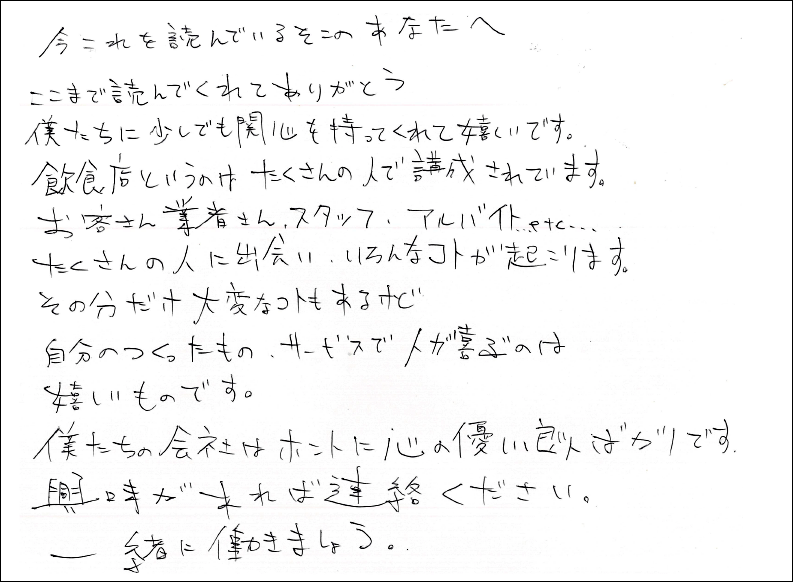 今これを読んでいるそこのあなたへ
ここまで読んでくれてありがとう
僕たちに少しでも関心を持ってくれて嬉しいです。
飲食店というのはたくさんの人で講成されています。
お客さん業者さん、スタッフ、アルバイト…etc….
たくさんの人に出会い、いろんなコトが起こります。
その分だけ大変なコトもあるけど
自分のつくったもの、サービスで人が喜ぶのは
嬉しいものです。
僕たちの会社はホントに心の優しい良い人ばかりです.
興味があれば連絡ください。
一緒に働きましょう。